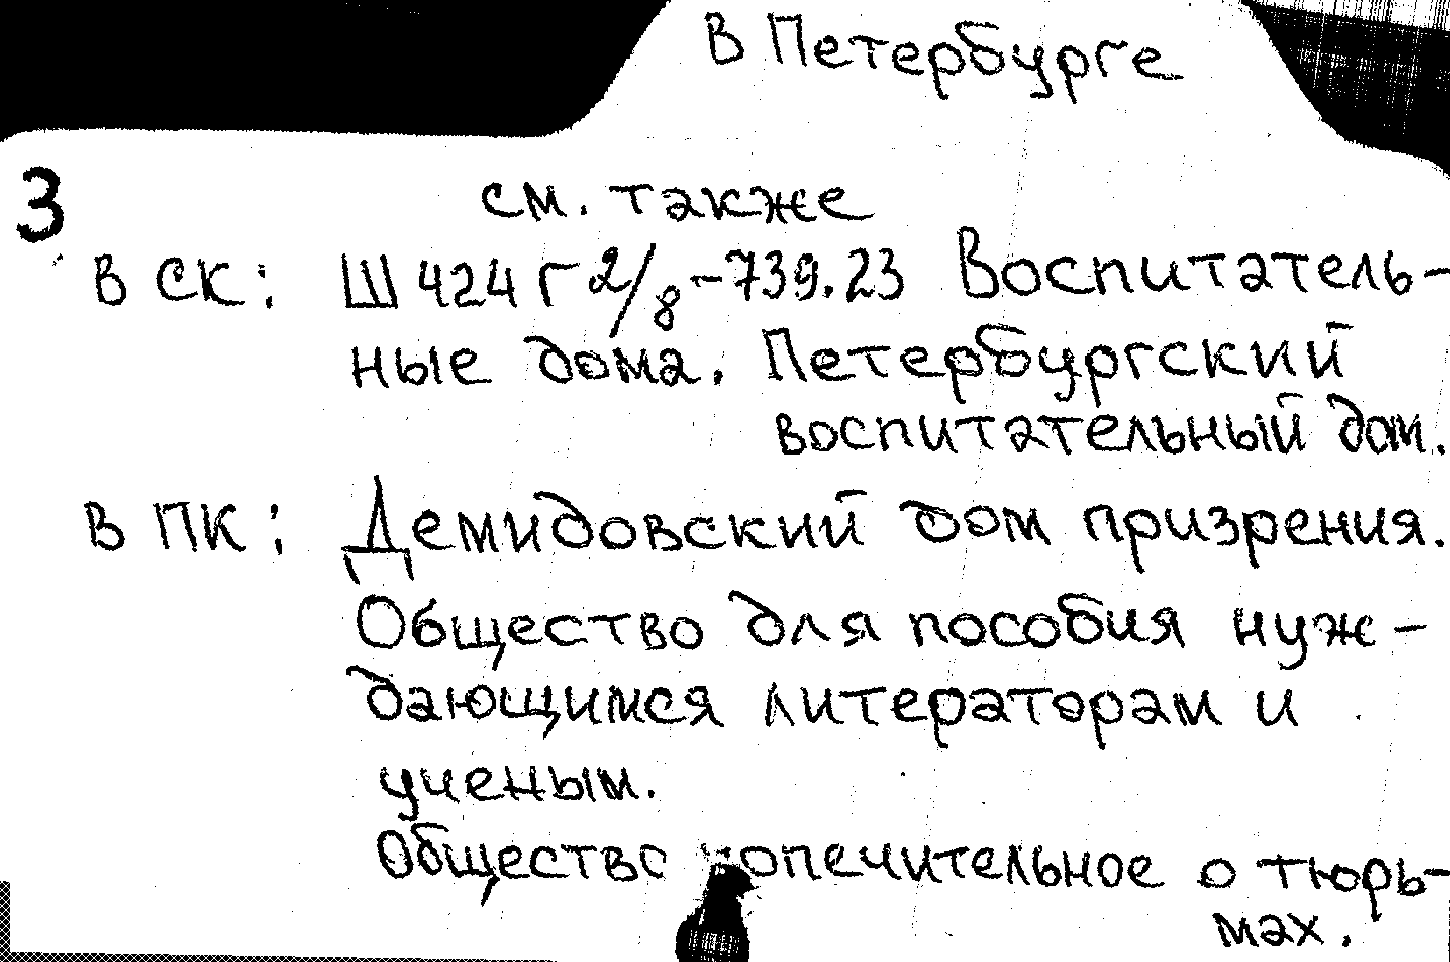 В Петербурге
3
см. также
В СК: Ш424г2/8-739.23 Воспитатель-
ные дома. Петербургский
воспитательный дом.
В ПК: Демидовский дом призрения.
Общество для пособия нуж-
дающимся литераторам и
ученым.
Общество попечительное о тюрь-
мах.